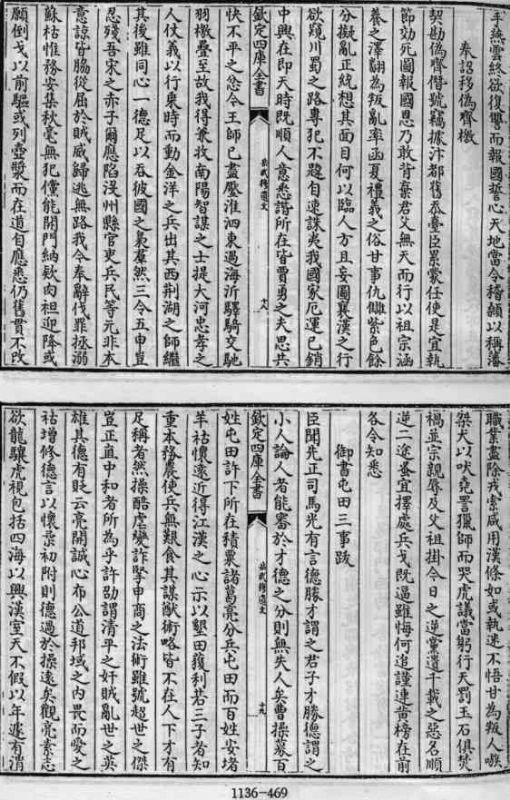 手燕雲終欲復讐而報國誓心天地當令稽顙以稱藩
奉詔移偽齊檄
契勘偽齊僭號竊據汴都舊忝臺臣累蒙任使是宜執
節効死圖報國恩乃敢背棄君父無天而行以祖宗涵
養之澤翻為叛亂率函夏禮義之俗甘事仇讎紫色餘
分擬亂正統想其面目何以臨人方且妄圖襄漢之行
欲窺川蜀之路專犯不韙自速誅夷我國家厄運已銷
中興在即天時既順人意悉諧所在皆賈勇之夫思共
欽定四庫全書
岳武穆遺文
十八
快不平之忿今王師已盡壓淮泗東過海沂驛騎交馳
羽檄疊至故我得兼收南陽智謀之士提大河忠孝之
人仗義以行乘時而動金洋之兵出其西荆湖之師繼
其後雖同心一德足以吞彼國之梟羣然三令五申豈
忍殘吾宋之赤子爾應陷没州縣官吏兵民等元非本
意諒皆脇從屈於賊威歸逃無路我今奉辭伐罪拯溺
蘇枯惟務安集秋毫無犯儻能開門納欵肉袒迎降或
願倒戈以前驅或列壺漿而在道自應悉仍舊貫不改
職業盡除戎索咸用漢條如或執迷不悟甘為叛人嗾
桀犬以吠堯詈獵師而哭虎議當躬行天罰玉石俱焚
禍並宗親辱及父祖掛今日之逆黨遺千載之惡名順
逆二途蚤宜擇處兵戈既逼雖悔何追謹連黃榜在前
各令知悉
御書屯田三事跋
臣聞先正司馬光有言德勝才謂之君子才勝德謂之
小人論人者能審於才德之分則無失人矣曹操募百
欽定四庫全書
岳武穆遺文
十九
姓屯田許下所在積粟諸葛亮分兵屯田而百姓安堵
羊祜懷遠近得江漢之心示以墾田獲利若三子者知
重本務農使兵無艱食其謀猷術略皆不在人下才有
足稱者然操酷虐變詐擥申商之法術雖號超世之傑
豈正直中和者所為乎許劭謂清平之奸賊亂世之英
雄其德有貶云亮開誠心布公道邦域之内畏而愛之
祜增修德信以懷柔初附則德過於操遠矣觀亮素志
欲龍驤虎視包括四海以興漢室天不假以年遂有渭
1136-469